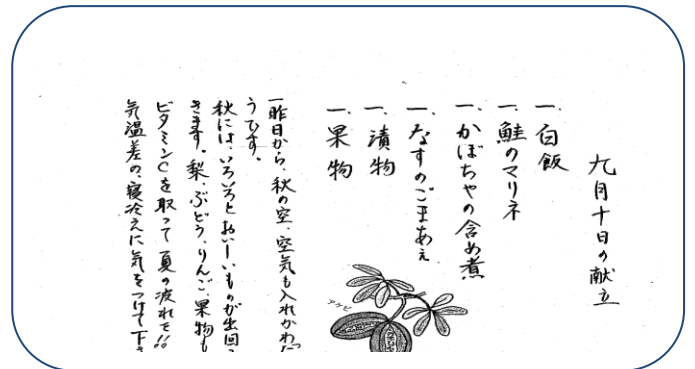 九月十日の献立
一、白飯
一、鮭のマリネ
一、かぼちゃの含め煮
一、なすのごまあえ
一、漬物
一、果物
アケビ
一昨日から、秋の空、空気も入れかわった
うです。
秋には、いろいろとおいしいものが出回っ
きます。梨、ぶどう、りんご、果物も
ビタミンCを取って夏の疲れを!!
気温差の、寝冷えに気をつけて下さ